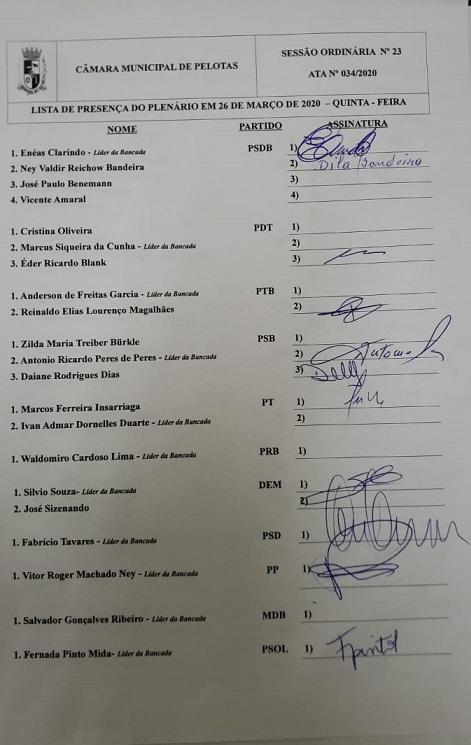 CÂMARA MUNICIPAL DE PELOTAS
SESSÃO ORDINÁRIA Nº 23
ATA Nº 034/2020
LISTA DE PRESENÇA DO PLENÁRIO EM 26 DE MARÇO DE 2020 – QUINTA - FEIRA
NOME PARTIDO ASSINATURA
1. Enéas Clarindo - Líder da Bancada PSDB 1)
2. Ney Valdir Reichow Bandeira 2) Dila Bandeira
3. José Paulo Benemann 3)
4. Vicente Amaral 4)
1. Cristina Oliveira PDT 1)
2. Marcus Siqueira da Cunha - Líder da Bancada 2)
3. Éder Ricardo Blank 3)
1. Anderson de Freitas Garcia - Líder da Bancada PTB 1)
2. Reinaldo Elias Lourenço Magalhães 2)
1. Zilda Maria Treiber Bürkle PSB 1)
2. Antonio Ricardo Peres de Peres - Líder da Bancada 2) Antonio
3. Daiane Rodrigues Dias 3)
1. Marcos Ferreira Insarriaga PT 1)
2. Ivan Admar Dornelles Duarte - Líder da Bancada 2)
1. Waldomiro Cardoso Lima - Líder da Bancada PRB 1)
1. Silvio Souza- Líder da Bancada DEM 1)
2. José Sizenando 2)
1. Fabrício Tavares - Líder da Bancada PSD 1)
1. Vitor Roger Machado Ney - Líder da Bancada PP 1)
1. Salvador Gonçalves Ribeiro - Líder da Bancada MDB 1)
1. Fernada Pinto Mida- Líder da Bancada PSOL 1)